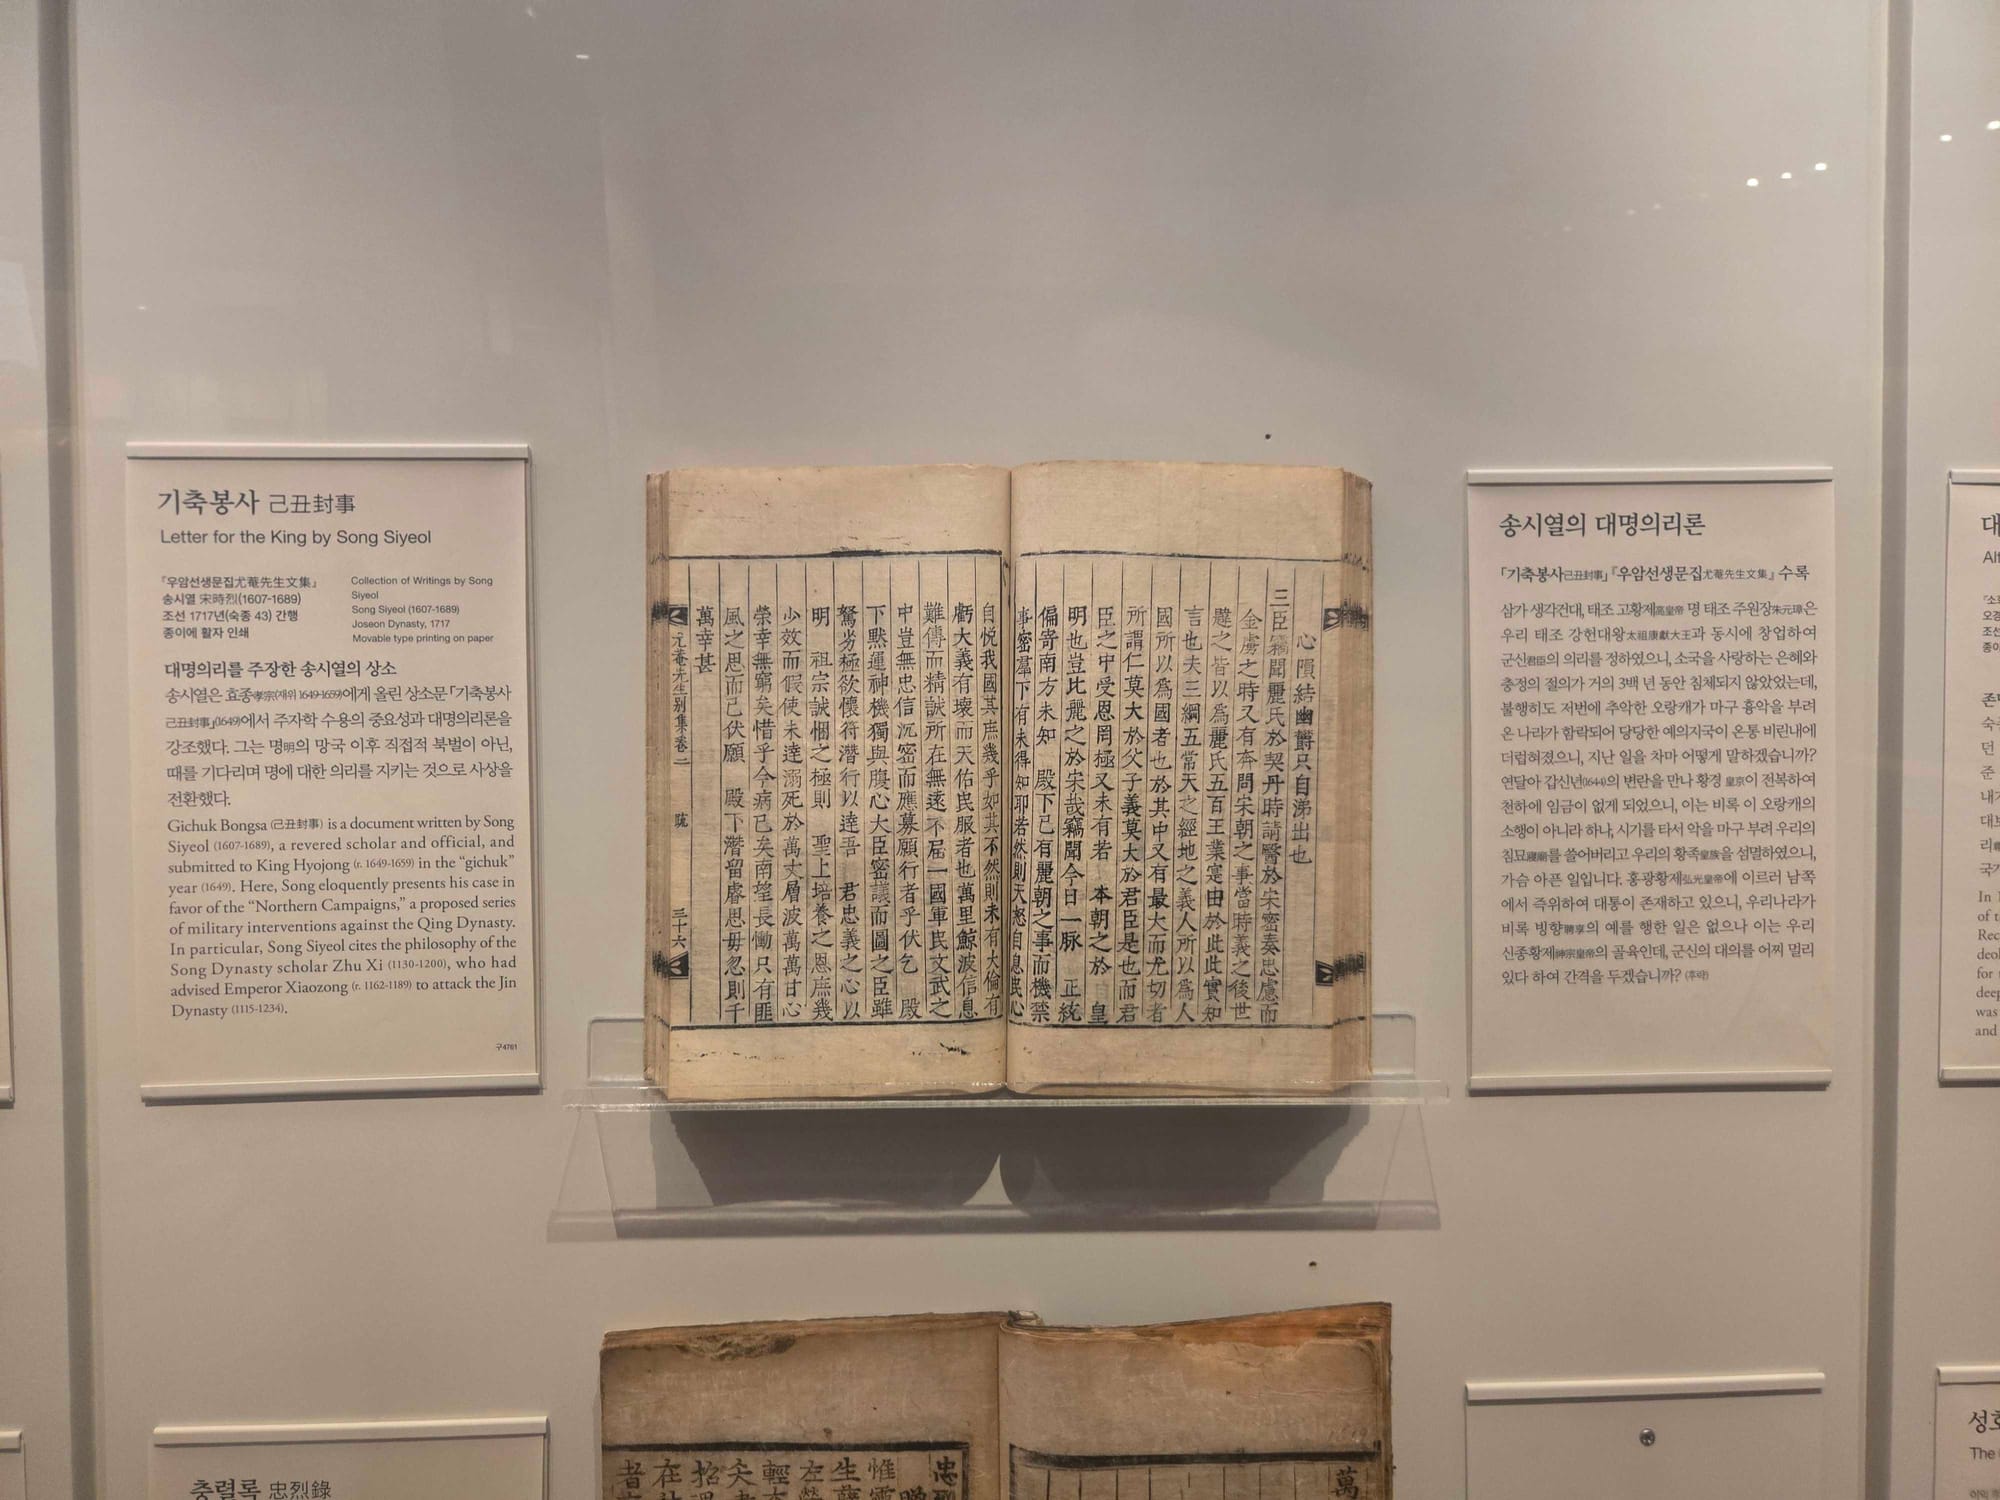 기축봉사 己丑封事
Letter for the King by Song Siyeol
『우암선생문집尤菴先生文集』
송시열 宋時烈(1607-1689)
조선 1717년(숙종 43) 간행
종이에 활자 인쇄
Collection of Writings by Song
Siyeol
Song Siyeol (1607-1689)
Joseon Dynasty, 1717
Movable type printing on paper
대명의리를 주장한 송시열의 상소
송시열은 효종孝宗(재위 1649-1659)에게 올린 상소문「기축봉사
己丑封事」(1649)에서 주자학 수용의 중요성과 대명의리론을
강조했다. 그는 명明의 망국 이후 직접적 북벌이 아닌,
때를 기다리며 명에 대한 의리를 지키는 것으로 사상을
전환했다.
Gichuk Bongsa (己丑封事) is a document written by Song
Siyeol (1607-1689), a revered scholar and official, and
submitted to King Hyojong (r. 1649-1659) in the “gichuk”
year (1649). Here, Song eloquently presents his case in
favor of the “Northern Campaigns,” a proposed series
of military interventions against the Qing Dynasty.
In particular, Song Siyeol cites the philosophy of the
Song Dynasty scholar Zhu Xi (1130-1200), who had
advised Emperor Xiaozong (r. 1162-1189) to attack the Jin
Dynasty (1115-1234).
구4761
心隕結幽爵只自涕出也
三臣竊聞麗氏於契丹時請醫於宋密奏忠慮而
金虜之時又有奔問宋朝之事當時義之後世
韙之皆以爲麗氏五百王業寔由於此此實知
言也夫三綱五常天之經地之義人所以爲人
國所以爲國者也於其中又有最大而尤切者
所謂仁莫大於父子義莫大於君臣是也而君
臣之中受恩罔極又未有若 本朝之於 皇
明也豈比麗之於宋哉竊聞今日一脉 正統
偏寄南方未知 殿下已有麗朝之事而機禁
事密羣下有未得知耶若然則天怒自息民心
自悅我國其庶幾乎如其不然則未有大倫有
虧大義有壞而天佑民服者也萬里鯨波信息
難傳而精誠所在無遠不屆一國軍民文武之
中豈無忠信沉密而應募願行者乎伏乞 殿
下默運神機獨與腹心大臣密議而圖之臣雖
駑劣極欲懷符潛行以達吾 君忠義之心以
明 祖宗誠悃之極則 聖上培養之恩庶幾
少效而假使未達溺死於萬丈層波萬萬甘心
榮幸無窮矣惜乎今病已矣南望長慟只有匪
風之思而已伏願 殿下潛留睿思毋忽則千
萬幸甚
尤菴先生別集卷二 疏 三十六
송시열의 대명의리론
「기축봉사己丑封事」『우암선생문집尤菴先生文集』 수록
삼가 생각건대, 태조 고황제高皇帝 명 태조 주원장朱元璋은
우리 태조 강헌대왕太祖康獻大王과 동시에 창업하여
군신君臣의 의리를 정하였으니, 소국을 사랑하는 은혜와
충정의 절의가 거의 3백 년 동안 침체되지 않았었는데,
불행히도 저번에 추악한 오랑캐가 마구 흉악을 부려
온 나라가 함락되어 당당한 예의지국이 온통 비린내에
더럽혀졌으니, 지난 일을 차마 어떻게 말하겠습니까?
연달아 갑신년(1644)의 변란을 만나 황경 皇京이 전복하여
천하에 임금이 없게 되었으니, 이는 비록 이 오랑캐의
소행이 아니라 하나, 시기를 타서 악을 마구 부려 우리의
침묘寢廟를 쓸어버리고 우리의 황족皇族을 섬멸하였으니,
가슴 아픈 일입니다. 홍광황제弘光皇帝에 이르러 남쪽
에서 즉위하여 대통이 존재하고 있으니, 우리나라가
비록 빙향聘享의 예를 행한 일은 없으나 이는 우리
신종황제神宗皇帝의 골육인데, 군신의 대의를 어찌 멀리
있다 하여 간격을 두겠습니까? (후략)
충렬록 忠烈錄